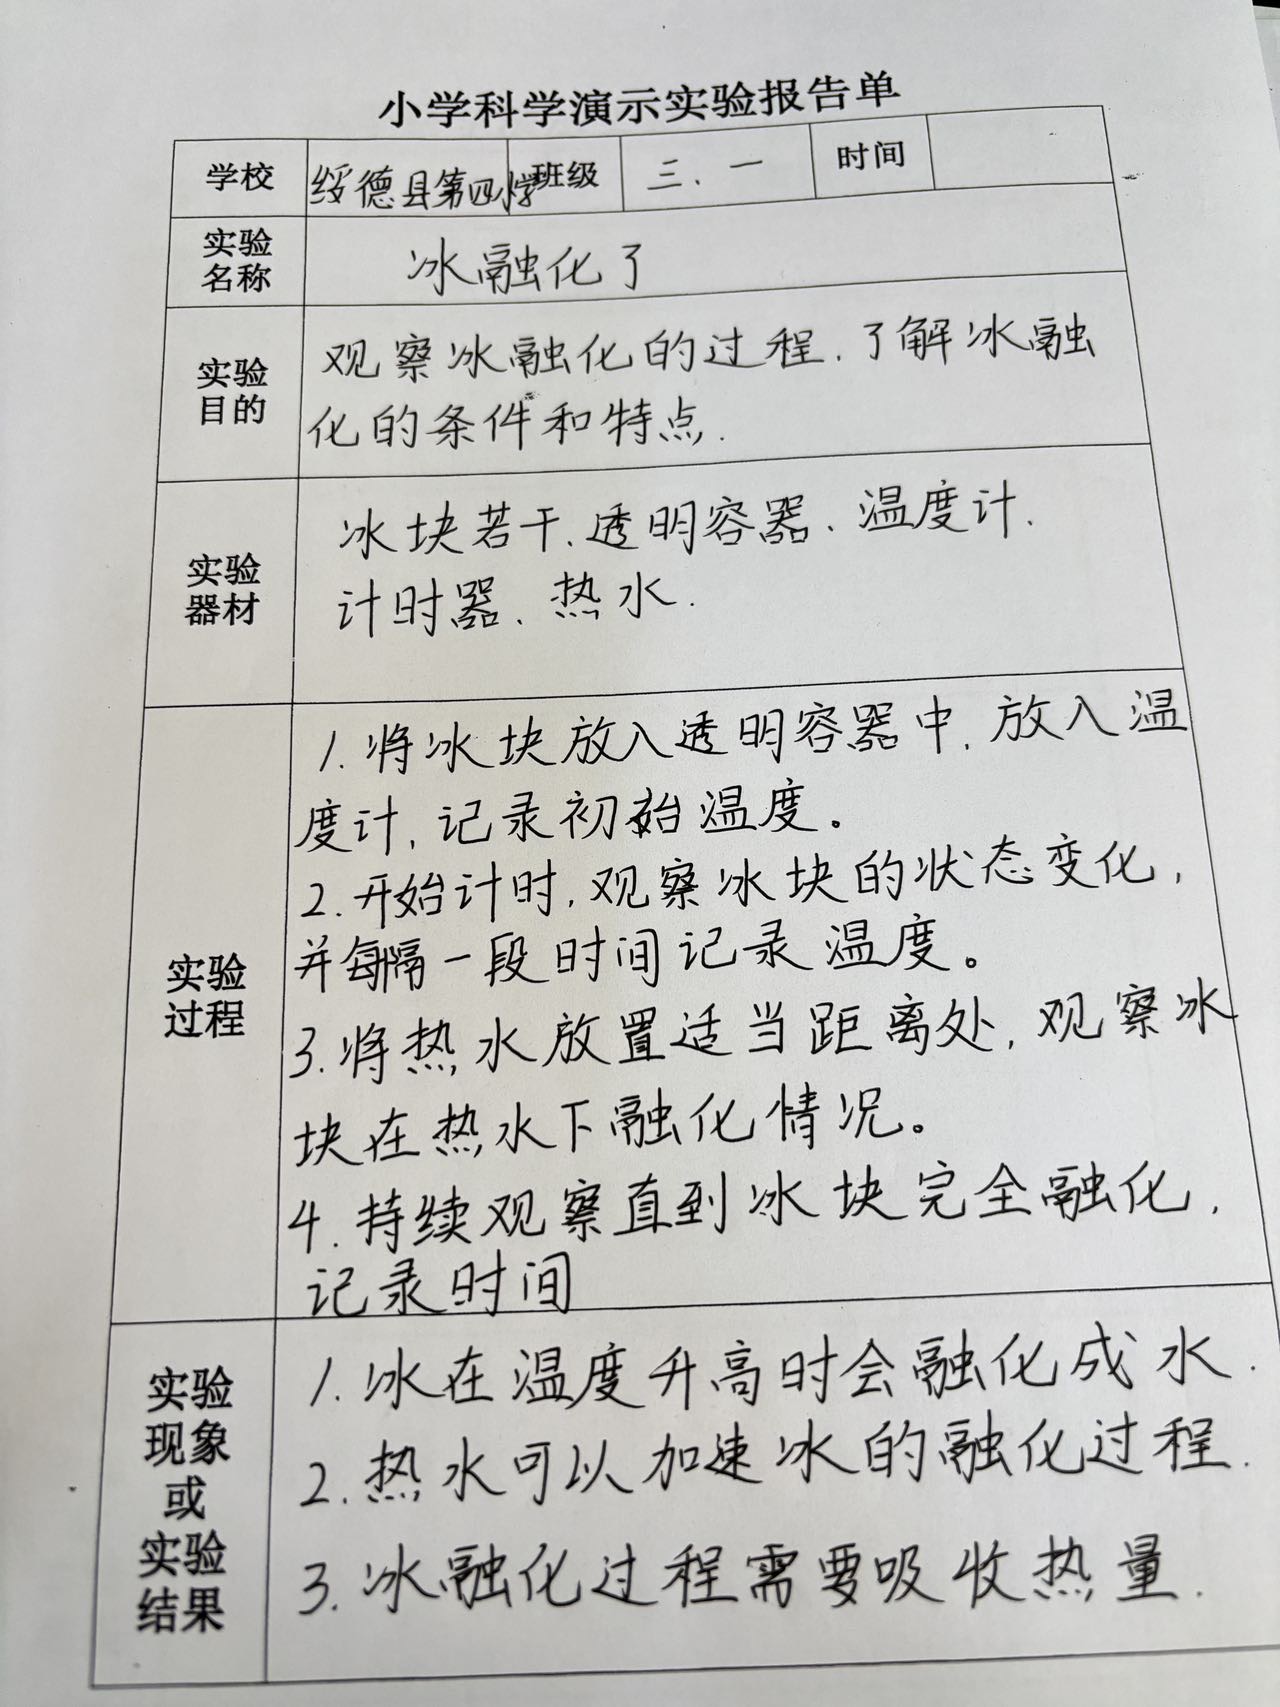 小学科学演示实验报告单
学校 绥德县第四小学 班级 三.一 时间
实验名称 冰融化了
实验目的
观察冰融化的过程.了解冰融
化的条件和特点.
实验器材
冰块若干.透明容器.温度计.
计时器.热水.
实验过程
1.将冰块放入透明容器中.放入温
度计,记录初始温度。
2.开始计时,观察冰块的状态变化,
并每隔一段时间记录温度。
3.将热水放置适当距离处,观察冰
块在热水下融化情况。
4.持续观察直到冰块完全融化,
记录时间
实验现象或实验结果
1.冰在温度升高时会融化成水.
2.热水可以加速冰的融化过程.
3.冰融化过程需要吸收热量.